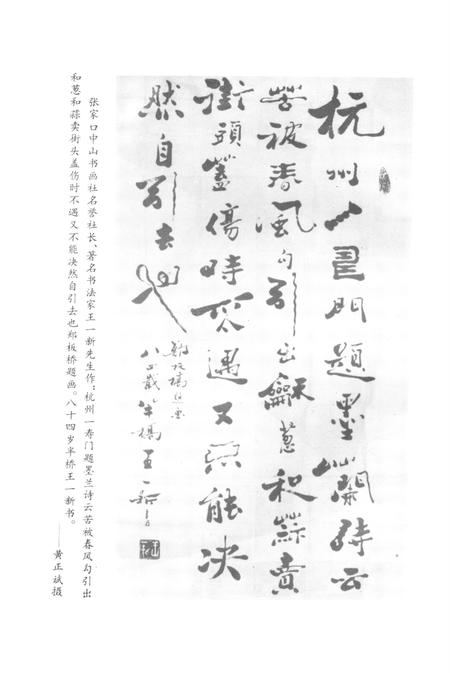 杭州一壽門題墨蘭詩云
苦被春風勾引出龢葱和蒜賣
街頭蓋傷時不遇又不能决
然自引去也
鄭板橋題畫
八四歲半橋王一新書
张家口中山书画社名誉社长、著名书法家王一新先生作:杭州一寿门题墨兰诗云苦被春风勾引出
和葱和蒜卖街头盖伤时不遇又不能决然自引去也郑板桥题画。八十四岁半桥王一新书。
——黄正斌摄